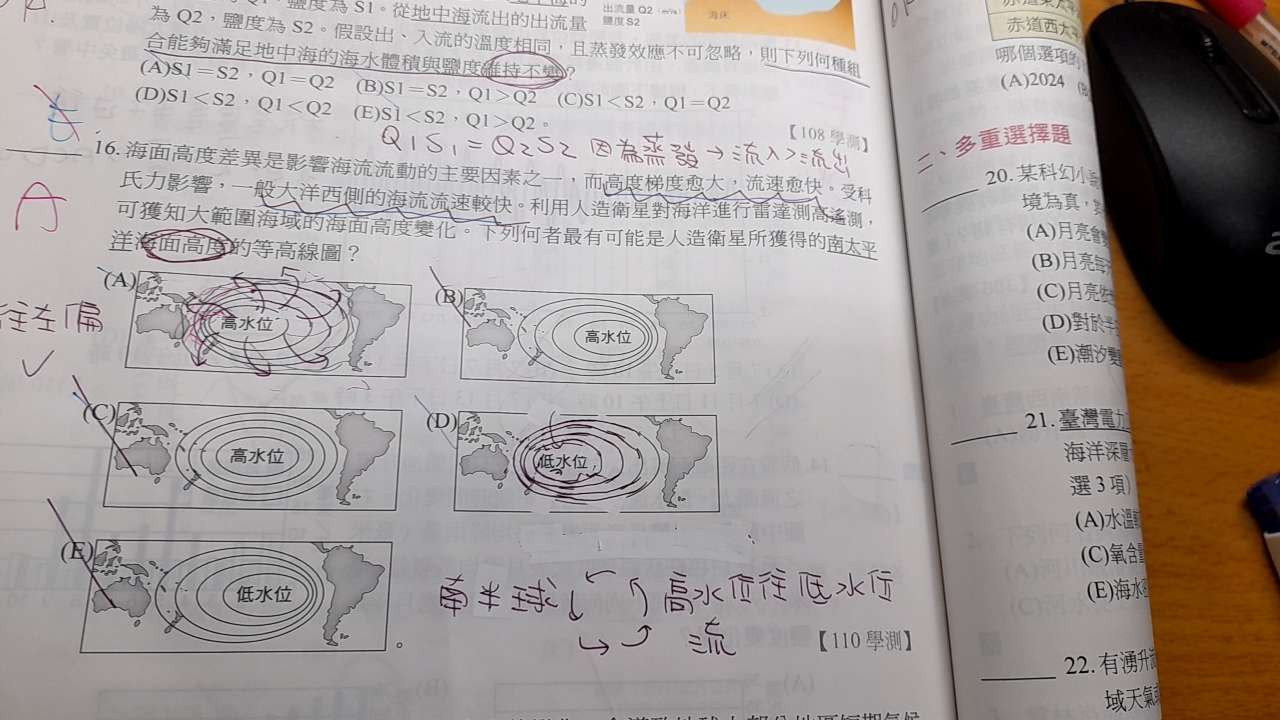 鹽度為 S1。從地中海流出的出流量
為 Q2，鹽度為 S2。假設出、入流的溫度相同，且蒸發效應不可忽略，則下列何種組
合能夠滿足地中海的海水體積與鹽度維持不變？
(A)S1＝S2，Q1＝Q2 (B)S1＝S2，Q1＞Q2 (C)S1＜S2，Q1＝Q2
(D)S1＜S2，Q1＜Q2 (E)S1＜S2，Q1＞Q2。
【108 學測】
出流量 Q2
鹽度 S2
海床
Q1S1=Q2S2 因為蒸發→流入>流出
A
16. 海面高度差異是影響海流流動的主要因素之一，而高度梯度愈大，流速愈快。受科
氏力影響，一般大洋西側的海流流速較快。利用人造衛星對海洋進行雷達測高遙測，
可獲知大範圍海域的海面高度變化。下列何者最有可能是人造衛星所獲得的南太平
洋海面高度的等高線圖？
(A)
高水位
(B)
高水位
往左偏
(C)
高水位
(D)
低水位
(E)
低水位
南半球
高水位往低水位
流
【110 學測】
赤道西太平
哪個選項的
(A)2024
二、多重選擇題
20. 某科幻小
境為真，
(A)月亮會
(B)月亮每
(C)月亮依
(D)對於半
(E)潮汐變
21. 臺灣電力
海洋深層
選 3 項）
(A)水溫
(C)氧含量
(E)海水
22. 有湧升
域天氣